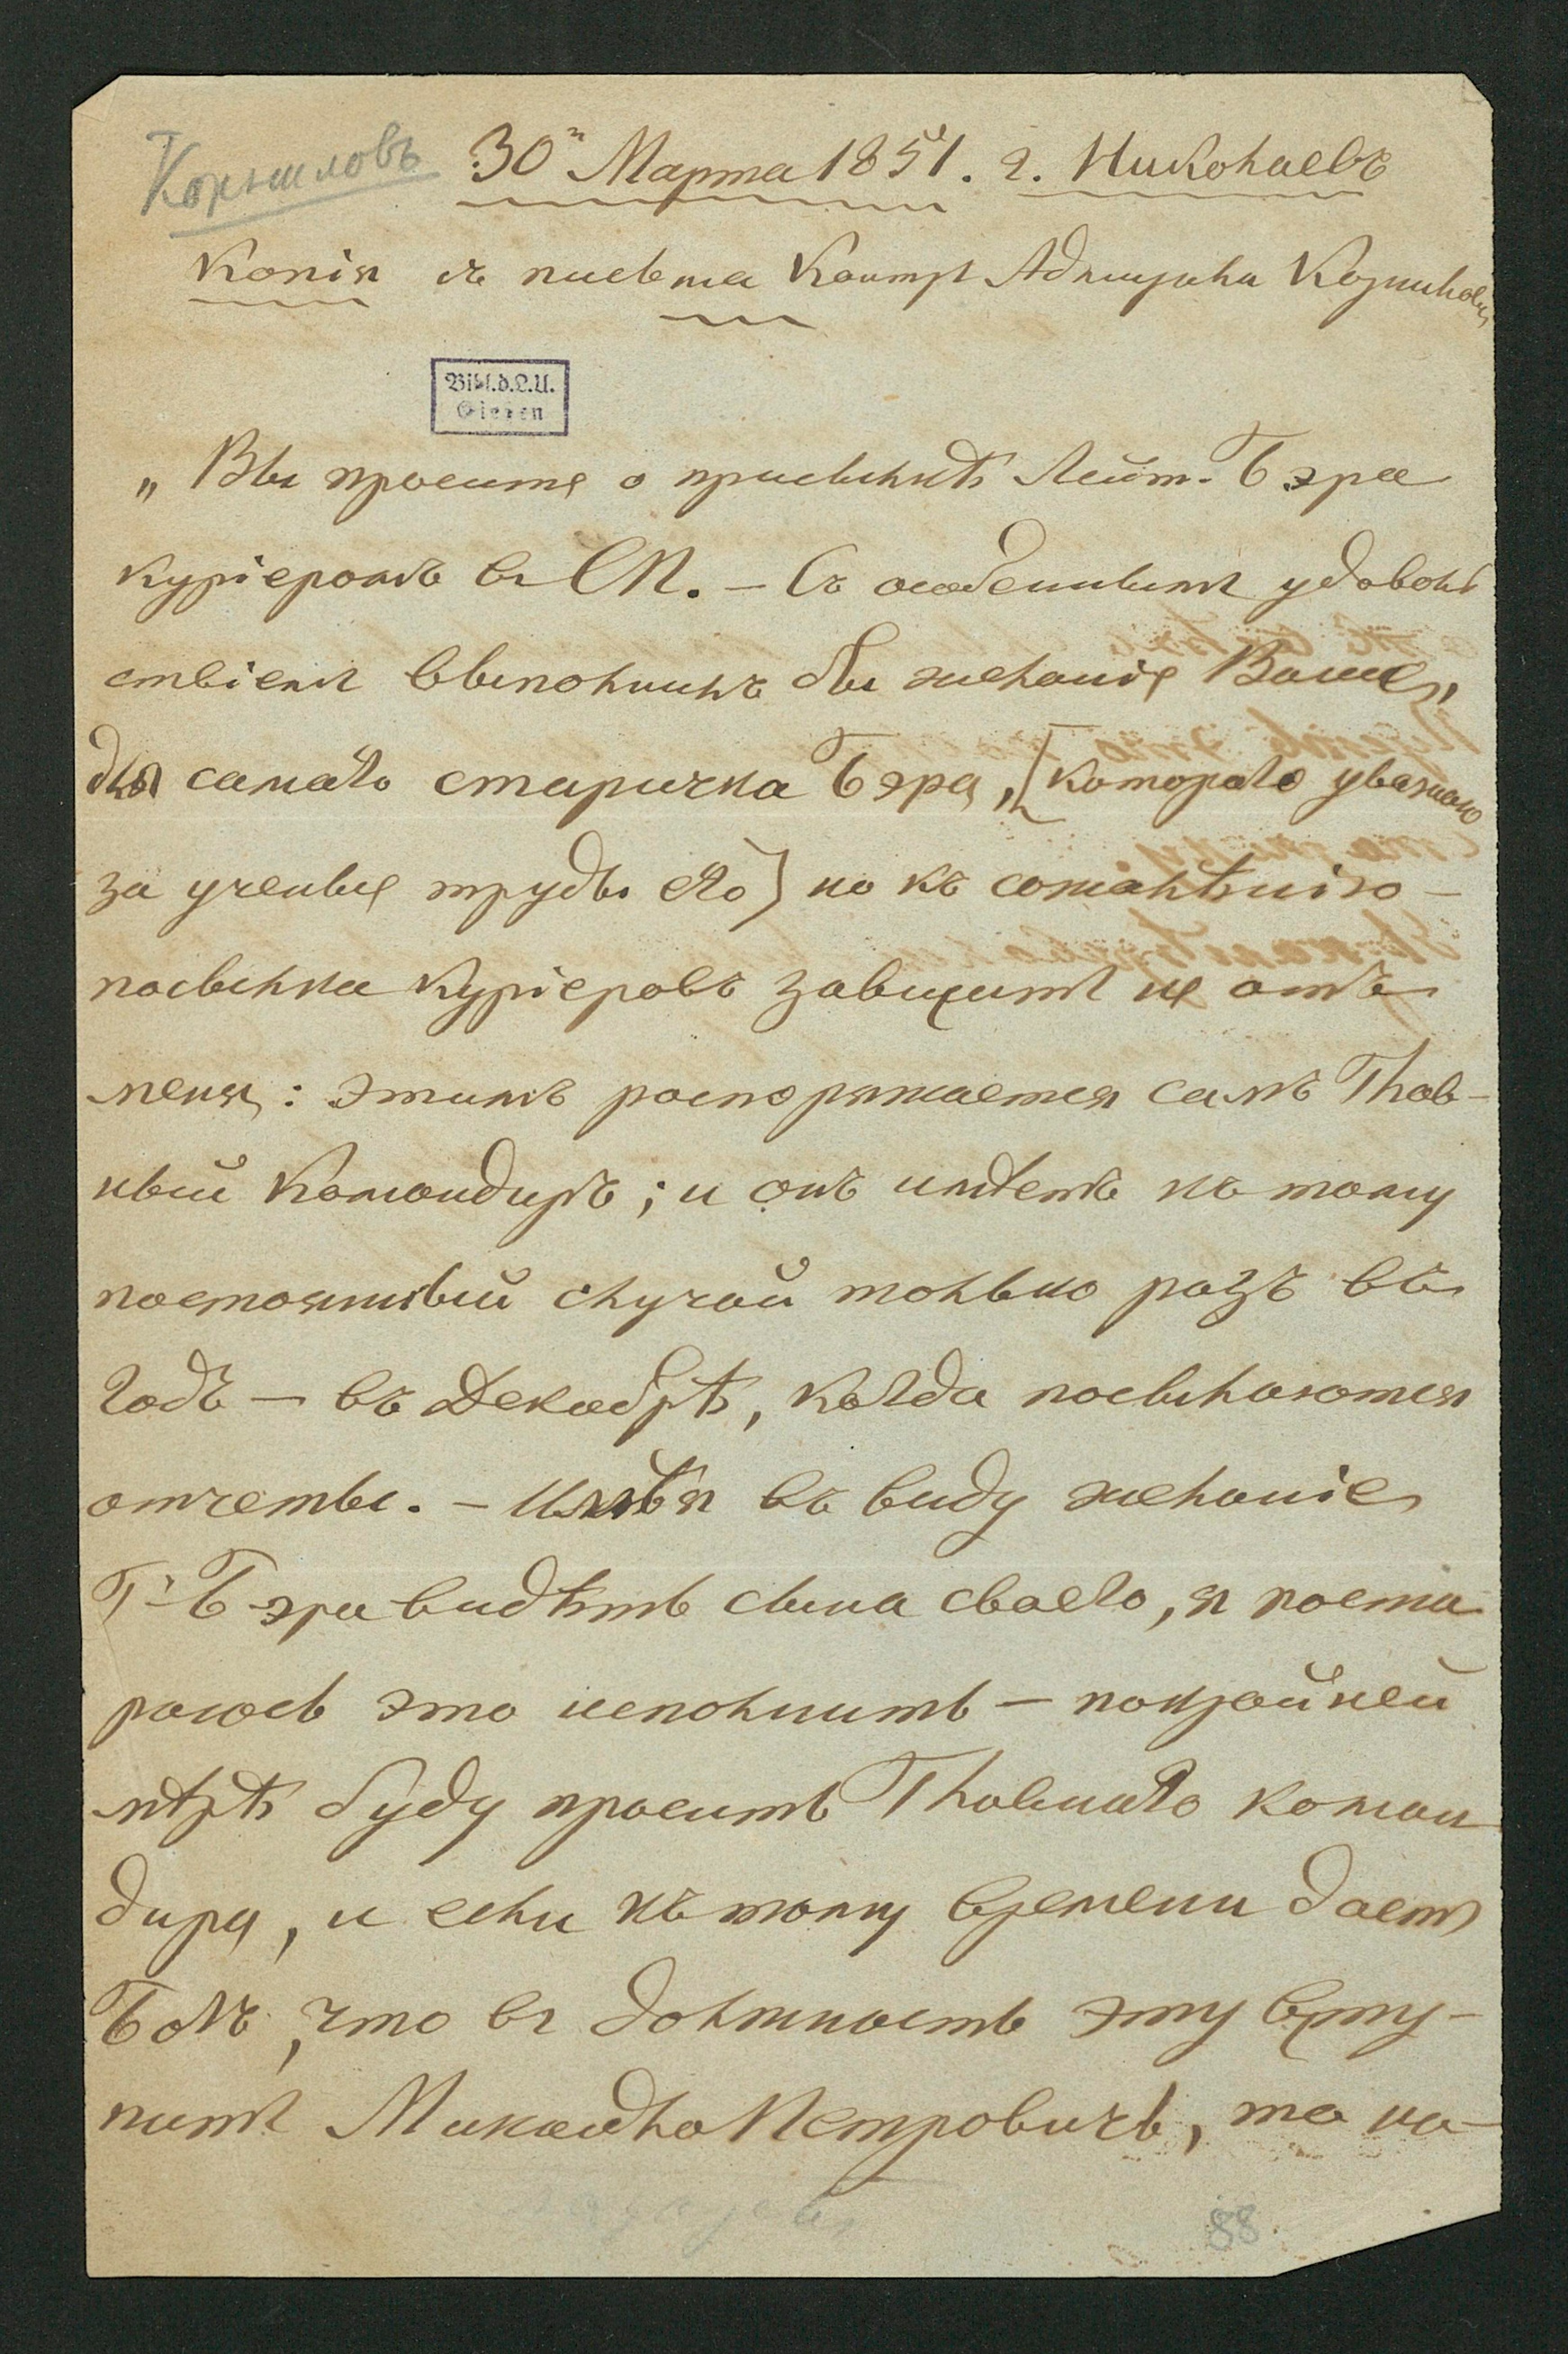 Корниловъ
30го Марта 1851. г. Николаевъ
Копія съ письма Контръ Адмирала Корнилова
Bibl.d.L.U.
Giessen
„ Вы просите о присылкѣ Лейт. Бэра
курьеромъ въ СП. – Съ особеннымъ удоволь
ствіемъ выполнилъ бы желаніе Ваше,
для самаго старичка Бэра, [котораго уважаю
за ученые труды его] но къ сожалѣнію –
посылка куріеровъ зависитъ не отъ
меня: этимъ распоряжается самъ Глав–
ный Командиръ; и онъ имѣетъ къ тому
постоянный случай только разъ въ
годъ – въ Декабрѣ, когда посылаются
отчеты. – Имѣя въ виду желаніе
Г. Бэра видѣть сына своего, я поста
раюсь это исполнить – покрайней
мѣрѣ буду просить Главнаго коман
дира, и если къ тому времени дастъ
Богъ, что въ должность эту всту–
питъ Михайла Петровичъ, то на–
Лазаревъ
88